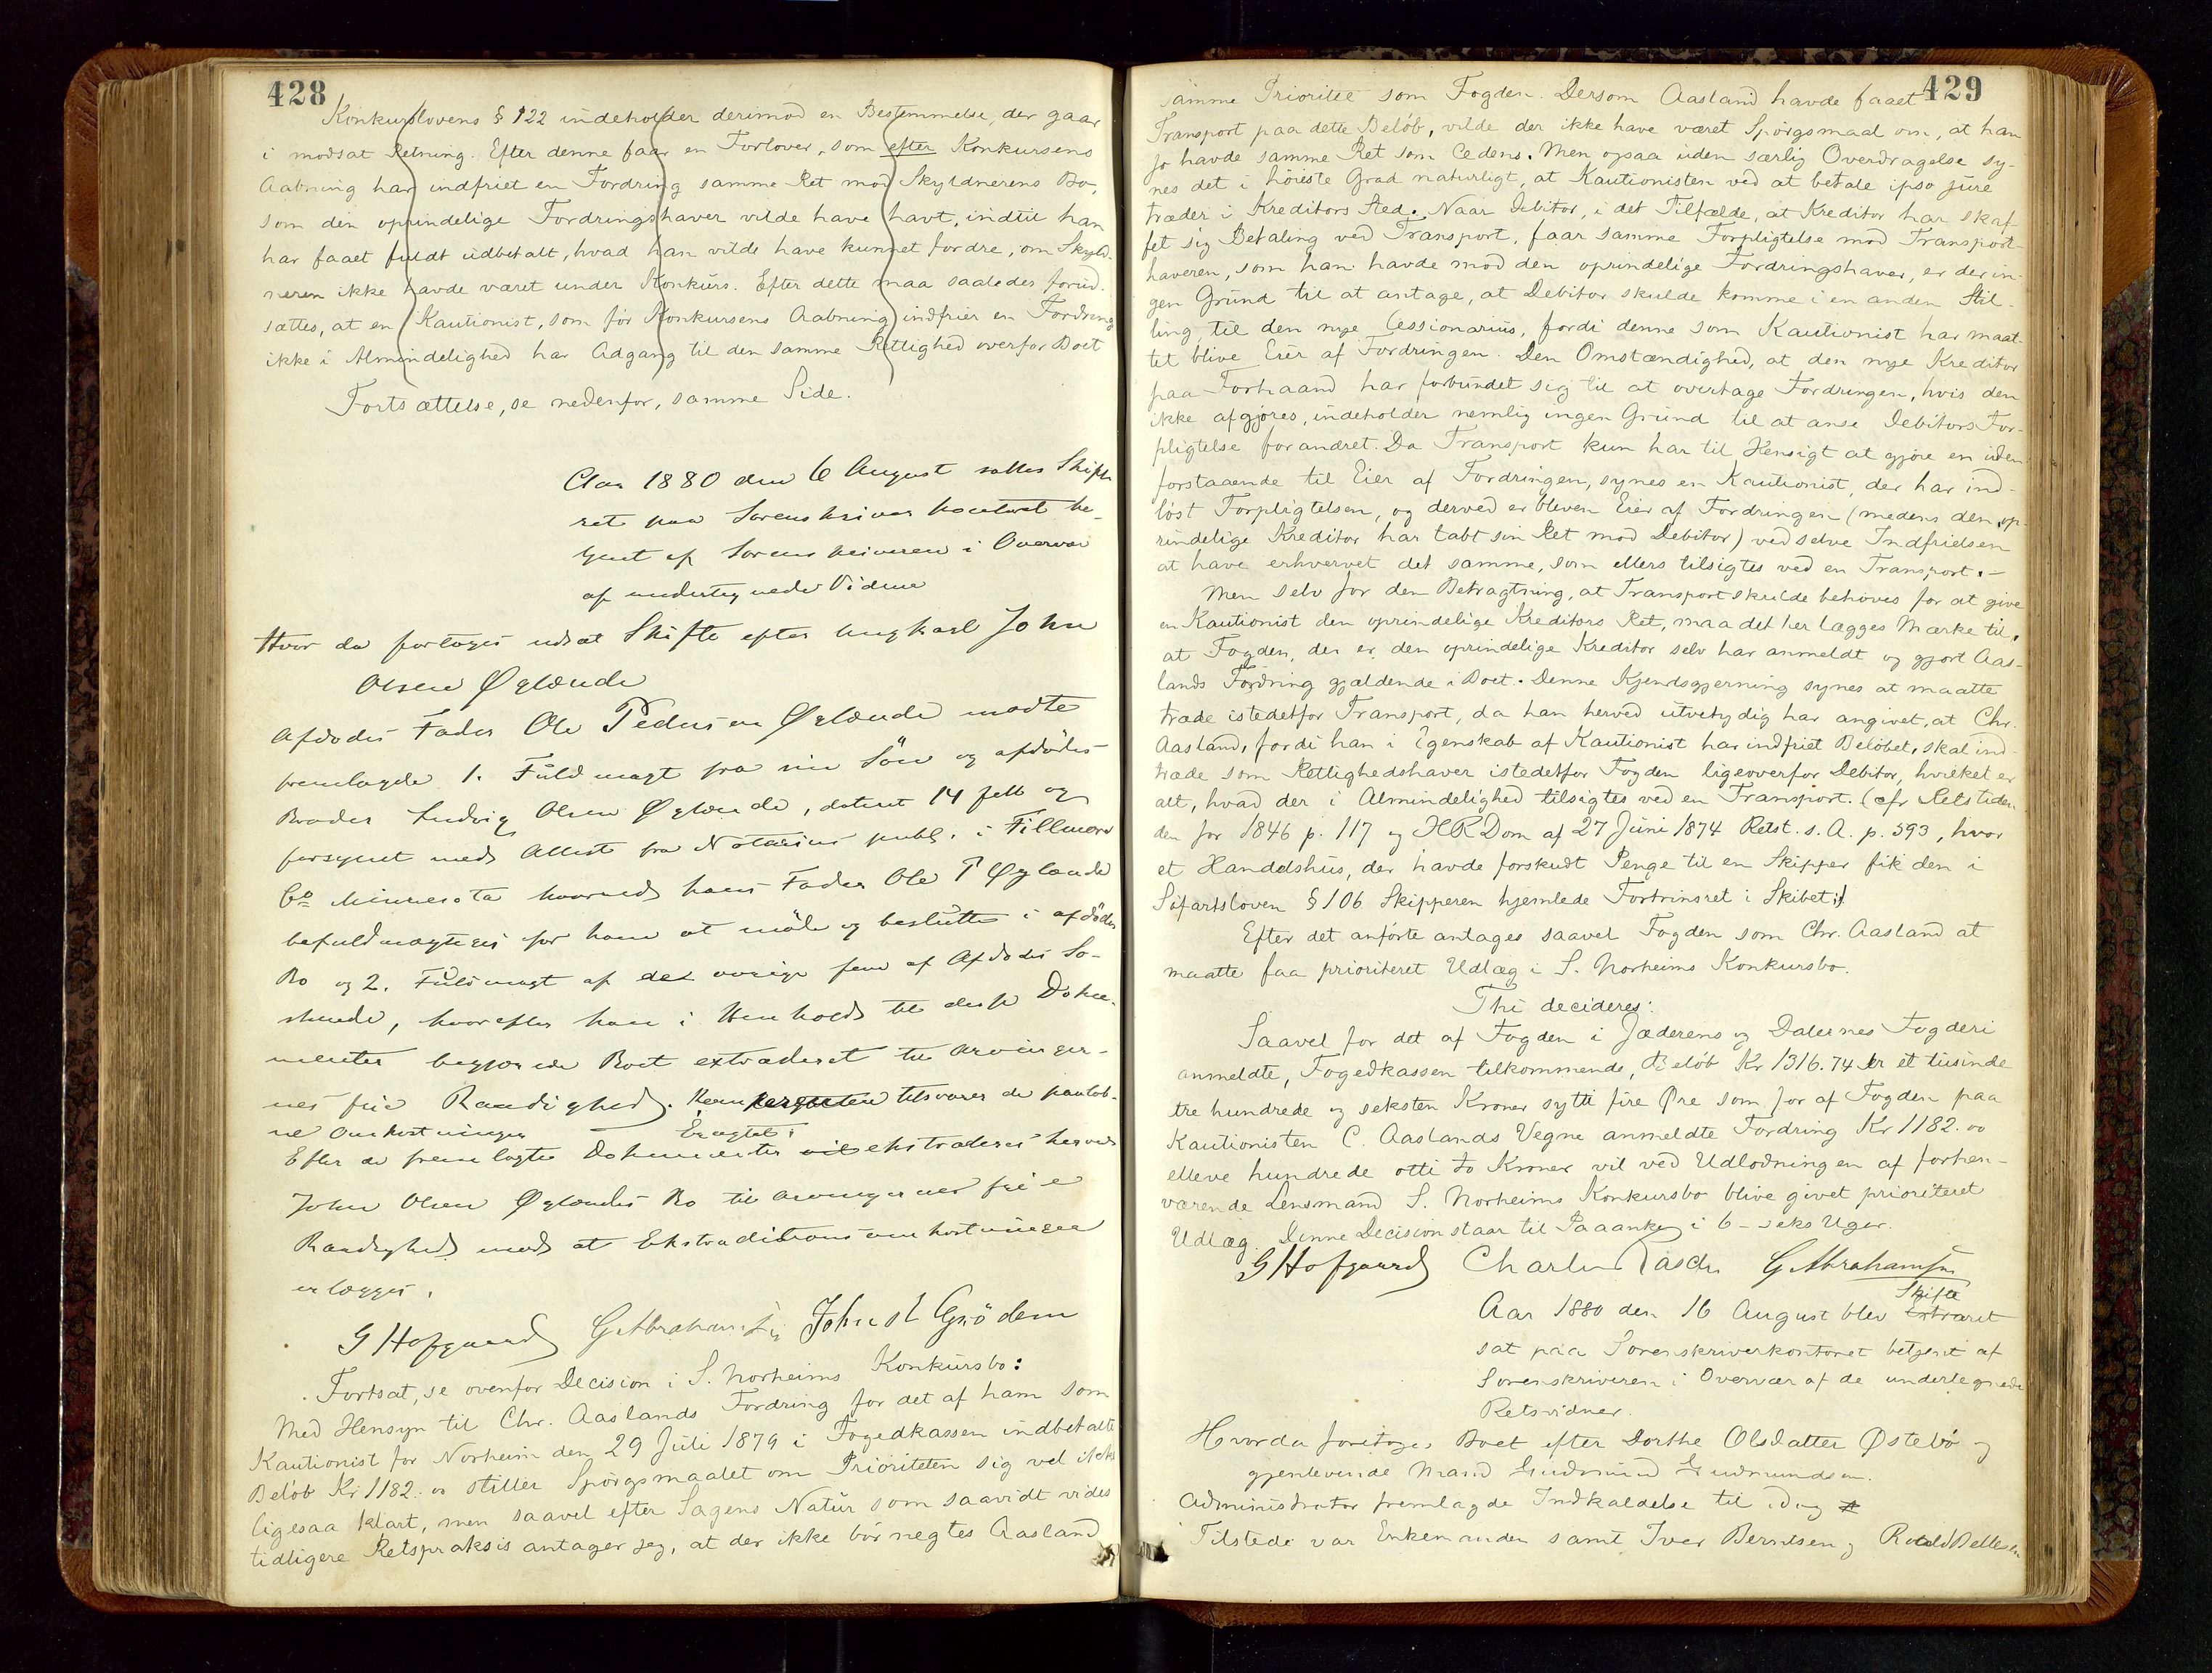 428
Konkurslovens § 122 indeholder derimod en Bestemmelse, der gaar
i modsat Retning. Efter denne faar en Forlover, som efter Konkursens
Aabning har indfriet en Fordring samme Ret mod Skyldnerens Bo,
som den oprindelige Fordringshaver vilde have havt, indtil han
har faaet fuldt udbetalt, hvad han vilde have kunnet fordre, om Skyld-
neren ikke havde været under Konkurs. Efter dette maa saaledes forud-
sættes, at en Kautionist, som før Konkursens Aabning indfrier en Fordring
ikke i Almindelighed har Adgang til den samme Rettighed overfor Boet
Fortsættelse, se nedenfor, samme Side.
Aar 1880 den 6 August sattes Skifte
ret paa Sorenskriverkontoret be-
tjent af Sorenskriveren i Overvær
af undertegnede Vidner
Hvor da foretoges udsat Skifte efter Ungkarl John
Olsen Øglænde
Afdødes Fader Ole Pedersen Øglænde mødte
fremlagde 1. Fuldmagt fra sin Søn og afdødes
Broder Ludvig Olsen Øglænde, dateret 14 febr og
forsynet med Attest fra Notarius publ. i Fillmore
Co Minnesota hvorved hans Fader Ole P Øglænde
befuldmægtiges for ham at møde og beslutte i afdødes
Bo og 2. Fuldmagt af det øvrige fem af Afdødes Sø-
skende, hvorefter han i Henhold til disse Doku-
menter begjærede Boet extraderet til Arvinger-
nes frie Raadighed. tilsvarer de paaløb-
ne Omkostninger
Eragtet:
Efter de fremlagte Dokumenter ekstraderes herved
John Olsen Øglændes Bo til Arvingernes frie
Raadighed mod at Ekstraditionsomkostningerne
erlægges.
G Hofgaard G. Abrahamsen John St Grödem
Fortsat, se ovenfor Decision i S. Norheims Konkursbo:
Med Hensyn til Chr. Aaslands Fordring for det af ham som
Kautionist for Norheim den 29 Juli 1879 i Fogedkassen indbetalte
Beløb Kr 1182.00 stiller Spørgsmaalet om Prioriteten sig vel ikke
ligesaa klart, men saavel efter Sagens Natur som saavidt vides
tidligere Retspraksis antager jeg, at der ikke bør negtes Aasland
429
samme Prioritet som Fogden. Dersom Aasland havde faaet
Transport paa dette Beløb, vilde der ikke have været Spørgsmaal om, at han
jo havde samme Ret som Cedens. Men ogsaa uden særlig Overdragelse sy-
nes det i høieste Grad naturligt, at Kautionisten ved at betale ipso jure
træder i Kreditors Sted. Naar Debitor, i det Tilfælde, at Kreditor har skaf-
fet sig Betaling ved Transport, faar samme Forpligtelse mod Transport-
haveren, som han havde mod den oprindelige Fordringshaver, er der in-
gen Grund til at antage, at Debitor skulde komme i en anden Stil-
ling til den nye Cessionarius, fordi denne som Kautionist har maat-
tet blive Eier af Fordringen. Den Omstændighed, at den nye Kreditor
paa Forhaand har forbundet sig til at overtage Fordringen, hvis den
ikke afgjøres, indeholder nemlig ingen Grund til at anse Debitors For-
pligtelse forandret. Da Transport kun har til Hensigt at gjøre en uden-
forstaaende til Eier af Fordringen, synes en Kautionist, der har ind-
løst Forpligtelsen, og derved er bleven Eier af Fordringen (medens den op-
rindelige Kreditor har tabt sin Ret mod Debitor) ved selve Indfrielsen
at have erhvervet det samme, som ellers tilsigtes ved en Transport. –
Men selv for den Betragtning, at Transport skulde behøves for at give
en Kautionist den oprindelige Kreditors Ret, maa det her lægges Mærke til,
at Fogden, der er den oprindelige Kreditor selv har anmeldt og gjort Aas-
lands Fordring gjældende i Boet. Denne Kjendsgjerning synes at maatte
træde istedetfor Transport, da han herved utvetydig har angivet, at Chr.
Aasland, fordi han i Egenskab af Kautionist har indfriet Beløbet, skal ind-
træde som Rettighedshaver istedetfor Fogden ligeoverfor Debitor, hvilket er
alt, hvad der i Almindelighed tilsigtes ved en Transport. (cfr Retstiden-
den for 1846 p. 117 og HR Dom af 27 Juni 1874 Retst. s. A. p. 593, hvor
et Handelshus, der havde forskudt Penge til en Skipper fik den i
Søfartsloven § 106 Skipperen hjemlede Fortrinsret i Skibet.)
Efter det anførte antages saavel Fogden som Chr. Aasland at
maatte faa prioriteret Udlæg i S. Norheims Konkursbo.
Thi decideres:
Saavel for det af Fogden i Jæderens og Dalernes Fogderi
anmeldte, Fogedkassen tilkommende, Beløb Kr 1316.74 er et tusinde
tre hundrede og seksten Kroner sytti fire Øre som for af Fogden paa
Kautionisten C. Aaslands Vegne anmeldte Fordring Kr 1182.00
elleve hundrede otti to Kroner vil ved Udlodningen af forhen-
værende Lensmand S. Norheims Konkursbo blive givet prioriteret
Udlæg. Denne Decision staar til Paaanke i 6 – seks Uger.
G Hofgaard G. Abrahamsen
Skifte
Aar 1880 den 16 August blev Extraret
sat paa Sorenskriverkontoret betjent af
Sorenskriveren i Overvær af de undertegnede
Retsvidner.
Hvorda foretoges Boet efter Dorthe Olsdatter Østebø og
gjenlevende Mand Gudmund Gudmundsen.
Administrator fremlagde Indkaldelse til idag
Tilstede var Enkemanden samt Iver Berntsen og